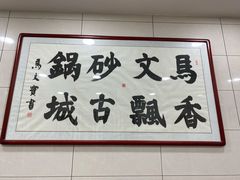 馬文砂鍋
香飄古城
馬文寶書